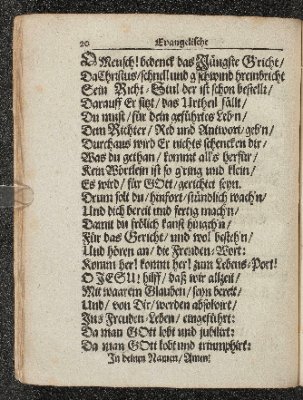 20 Evangelische
O Mensch! bedenck das Jüngste Gricht/
Da Christus/ schnell und g'schwind hreinbricht
Sein Richt-Stul der ist schon bestellt/
Darauff Er sitzt/ das Urtheil fällt/
Du must/ für dein geführtes Leb'n/
Dem Richter/ Red und Antwort geb'n/
Durchaus wird Er nichts schencken dir/
Was du gethan/ kommt alls herfür/
Kein Wörtlein ist so g'ring und klein/
Es wird/ für GOtt/ gerichtet seyn.
Drum solt du/ hinfort/ stündlich wach'n/
Und dich bereit und fertig mach'n/
Damit du frölich kanst hinach'n/
Für das Gericht/ und wol besteh'n/
Und hören an/ die Freuden-Wort:
Komm her! kommt her! zum Lebens-Port!
O JESU! hilff/ daß wir allzeit/
Mit waarem Glauben/ seyn bereit/
Und/ von Dir/ werden absolvirt/
Ins Freuden-Leben/ eingeführt:
Da man GOtt lobt und jubilirt:
Da man GOtt lobt und triumphirt:
In deinem Namen/ Amen!